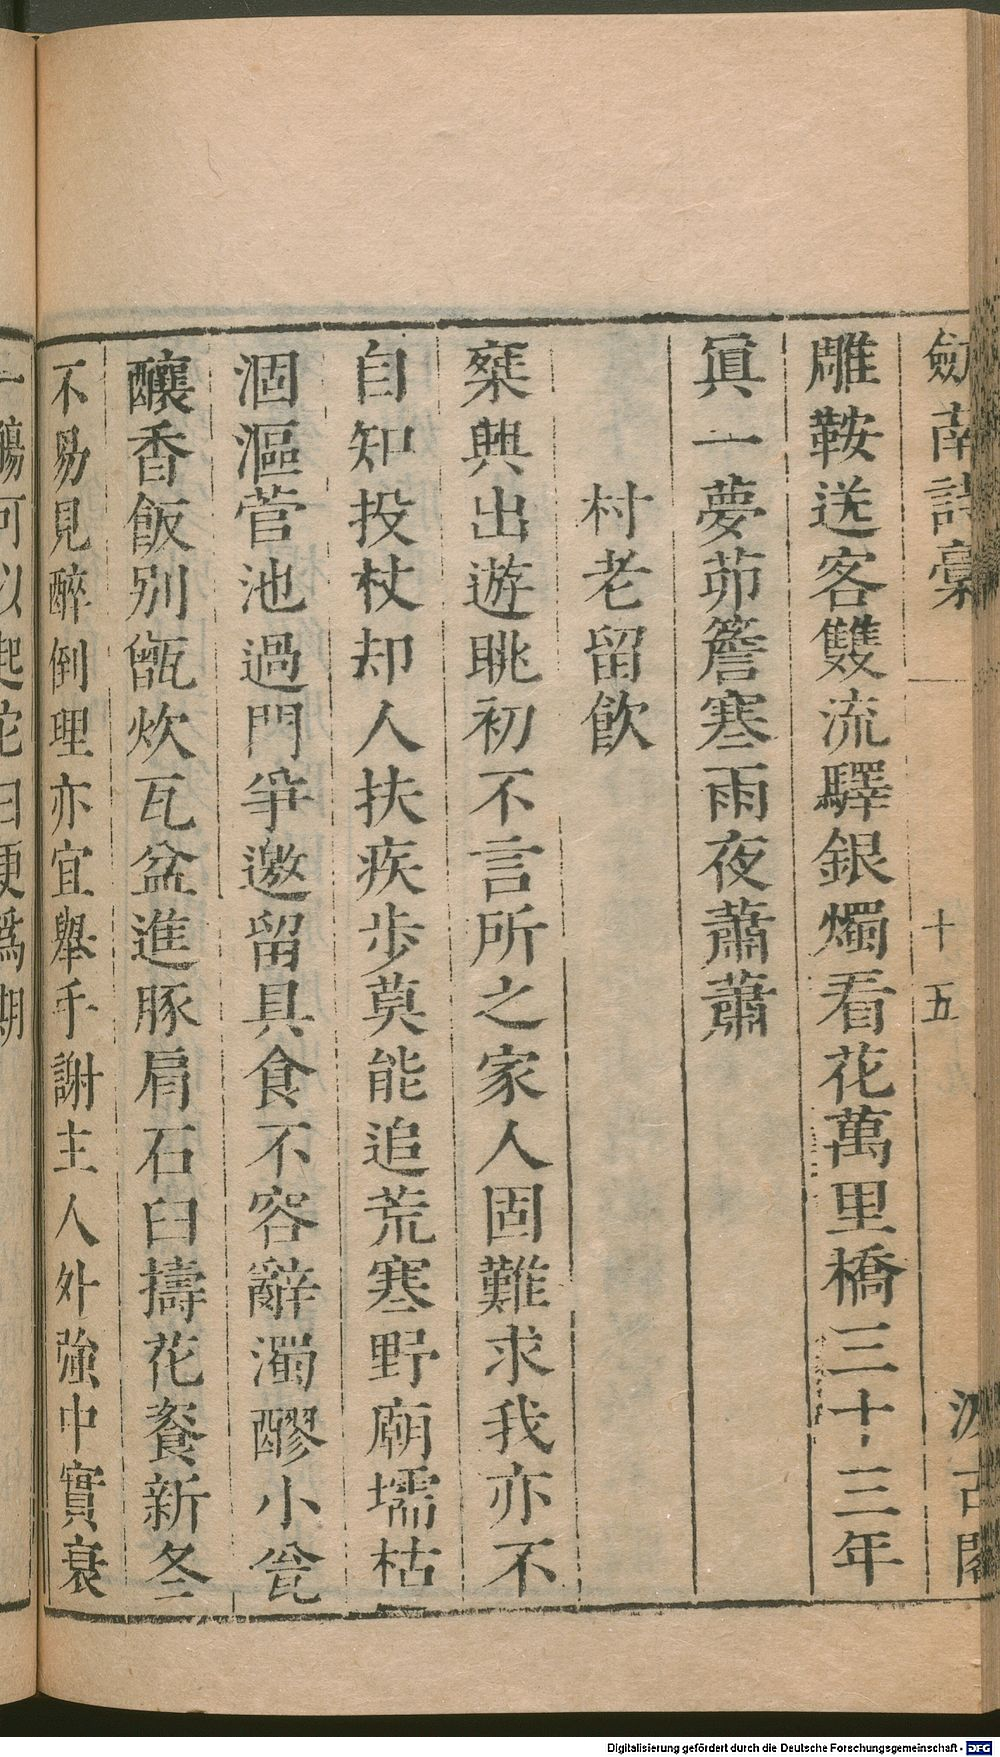 劒南詩稾 十五 汲古閣
雕鞍送客雙流驛銀燭看花萬里橋三十三年
眞一夢茆簷寒雨夜蕭蕭
村老留飲
椉興出遊眺初不言所之家人固難求我亦不
自知投杖却人扶疾步莫能追荒寒野廟壖枯
涸漚菅池過門爭邀留具食不容辭濁醪小瓮
釀香飯別甑炊瓦盆進豚肩石臼擣花餈新冬
不易見醉倒理亦宜舉手謝主人外強中實衰
一觴可以起它日更爲期
Digitalisierung gefördert durch die Deutsche Forschungsgemeinschaft - DFG